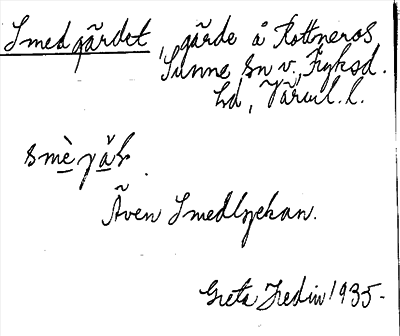 Smedgärdet, gärde å Rottneros
Sunne sn v., Fryksd.
hd, Värml. l.
smè̱γä̱ḷ.
Även Smedlyckan.
Greta Hedin 1935.